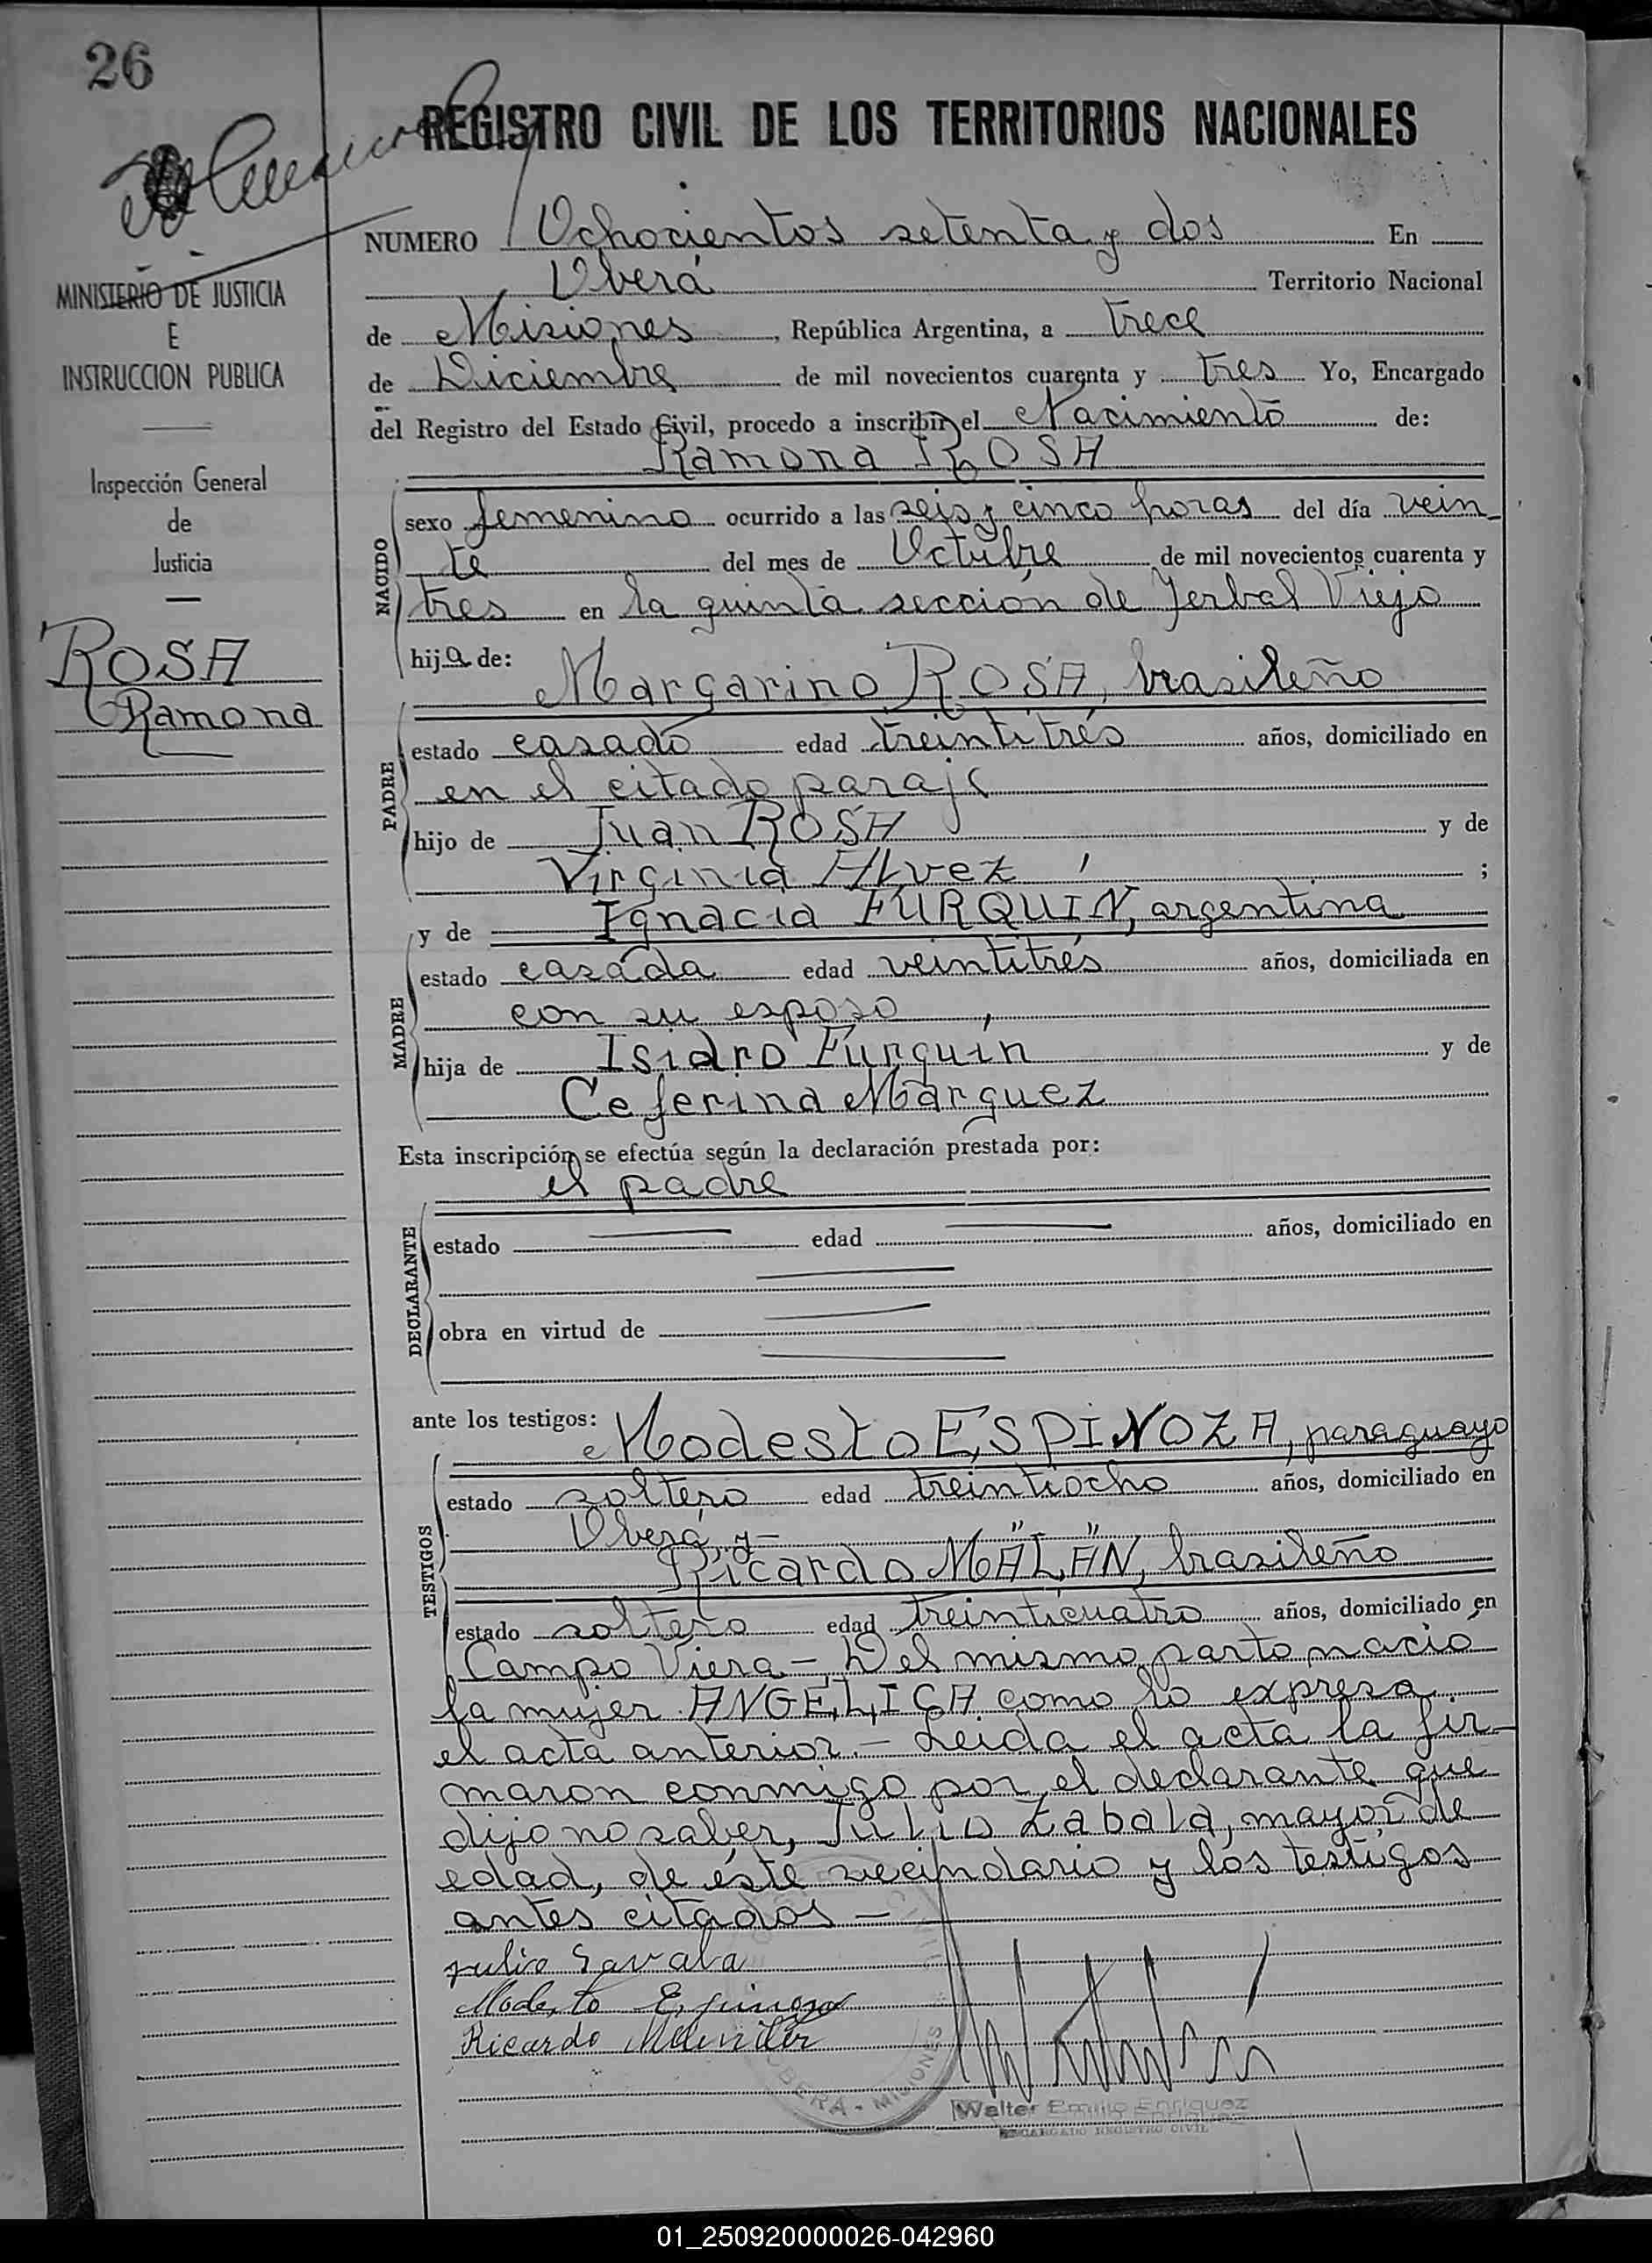 26
REGISTRO CIVIL DE LOS TERRITORIOS NACIONALES
MINISTERIO DE JUSTICIA
E
INSTRUCCION PUBLICA
Inspección General
de
Justicia
ROSA
Ramona
NUMERO Ochocientos setenta y dos En
Oberá Territorio Nacional
de Misiones, República Argentina, a trece
de Diciembre de mil novecientos cuarenta y tres Yo, Encargado
del Registro del Estado Civil, procedo a inscribir el Nacimiento de:
Ramona ROSA
NACIDO
sexo femenino ocurrido a las seis y cinco horas del día vein-
te del mes de Octubre de mil novecientos cuarenta y
tres en la quinta sección de Yerbal Viejo
hija de:
Margarino ROSA, brasileño
PADRE
estado casado edad treintitrés años, domiciliado en
en el citado paraje
hijo de Juan ROSA y de
Virginia Alvez, ;
y de Ignacia FURQUIN, argentina
MADRE
estado casada edad veintitrés años, domiciliada en
con su esposo,
hija de Isidro Furquin y de
Ceferina Marquez
Esta inscripción se efectúa según la declaración prestada por:
el padre
DECLARANTE
estado edad años, domiciliado en
obra en virtud de
ante los testigos: Modesto ESPINOZA, paraguayo
TESTIGOS
estado soltero edad treintiocho años, domiciliado en
Oberá, y-
Ricardo MÄLÄN, brasileño
estado soltero edad treinticuatro años, domiciliado en
Campo Viera - Del mismo parto nació
la mujer ANGELICA como lo expresa
el acta anterior.- Leida el acta la fir-
maron conmigo por el declarante que
dijo no saber, Julio Zabala, mayor de
edad, de éste vecindario y los testigos
antes citados -
julio Savala
Modesto Espinoza
Ricardo
OBERÁ - MISIONES
Walter Emilio Enriquez
ENCARGADO REGISTRO CIVIL
01_250920000026-042960